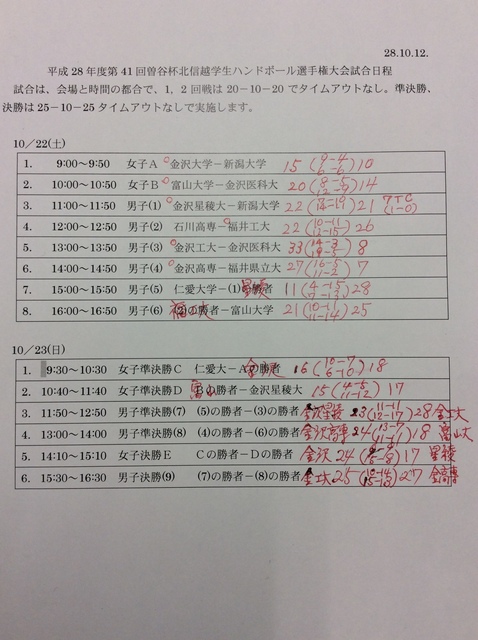 28.10.12.
平成28年度第41回曽谷杯北信越学生ハンドボール選手権大会試合日程
試合は、会場と時間の都合で、1，2回戦は20－10－20でタイムアウトなし。準決勝、
決勝は25－10－25タイムアウトなしで実施します。
10／22(土)
1. 9:00～9:50 女子A ○金沢大学－新潟大学 15 (9-4 6-6) 10
2. 10:00～10:50 女子B ○富山大学－金沢医科大 20 (8-5 12-9) 14
3. 11:00～11:50 男子(1) ○金沢星稜大－新潟大学 22 21 7TC (1-0)
4. 12:00～12:50 男子(2) 石川高専－○福井工大 22 (10-11 12-15) 26
5. 13:00～13:50 男子(3) ○金沢工大－金沢医科大 33 8
6. 14:00～14:50 男子(4) ○金沢高専－福井県立大 27 (16-5 11-2) 7
7. 15:00～15:50 男子(5) 仁愛大学－(1)勝者 星稜 11 (4-15 7-13) 28
8. 16:00～16:50 男子(6) (2)の勝者－富山大学 福工大 21 (10-11 11-14) 25
10／23(日)
1. 9:30～10:30 女子準決勝C 仁愛大－Aの勝者 16 (10-7 6-10) 18
2. 10:40～11:40 女子準決勝D Bの勝者－金沢星稜大 富山 15 (4-5 11-12) 17
3. 11:50～12:50 男子準決勝(7) (5)の勝者－(3)の勝者 金沢星稜 23 28 金工大
4. 13:00～14:00 男子準決勝(8) (4)の勝者－(6)の勝者 金沢高専 24 (13-7 11-11) 18 富山大
5. 14:10～15:10 女子決勝E Cの勝者－Dの勝者 金沢 24 17 星稜
6. 15:30～16:30 男子決勝(9) (7)の勝者－(8)の勝者 金工大 25 27 金高専